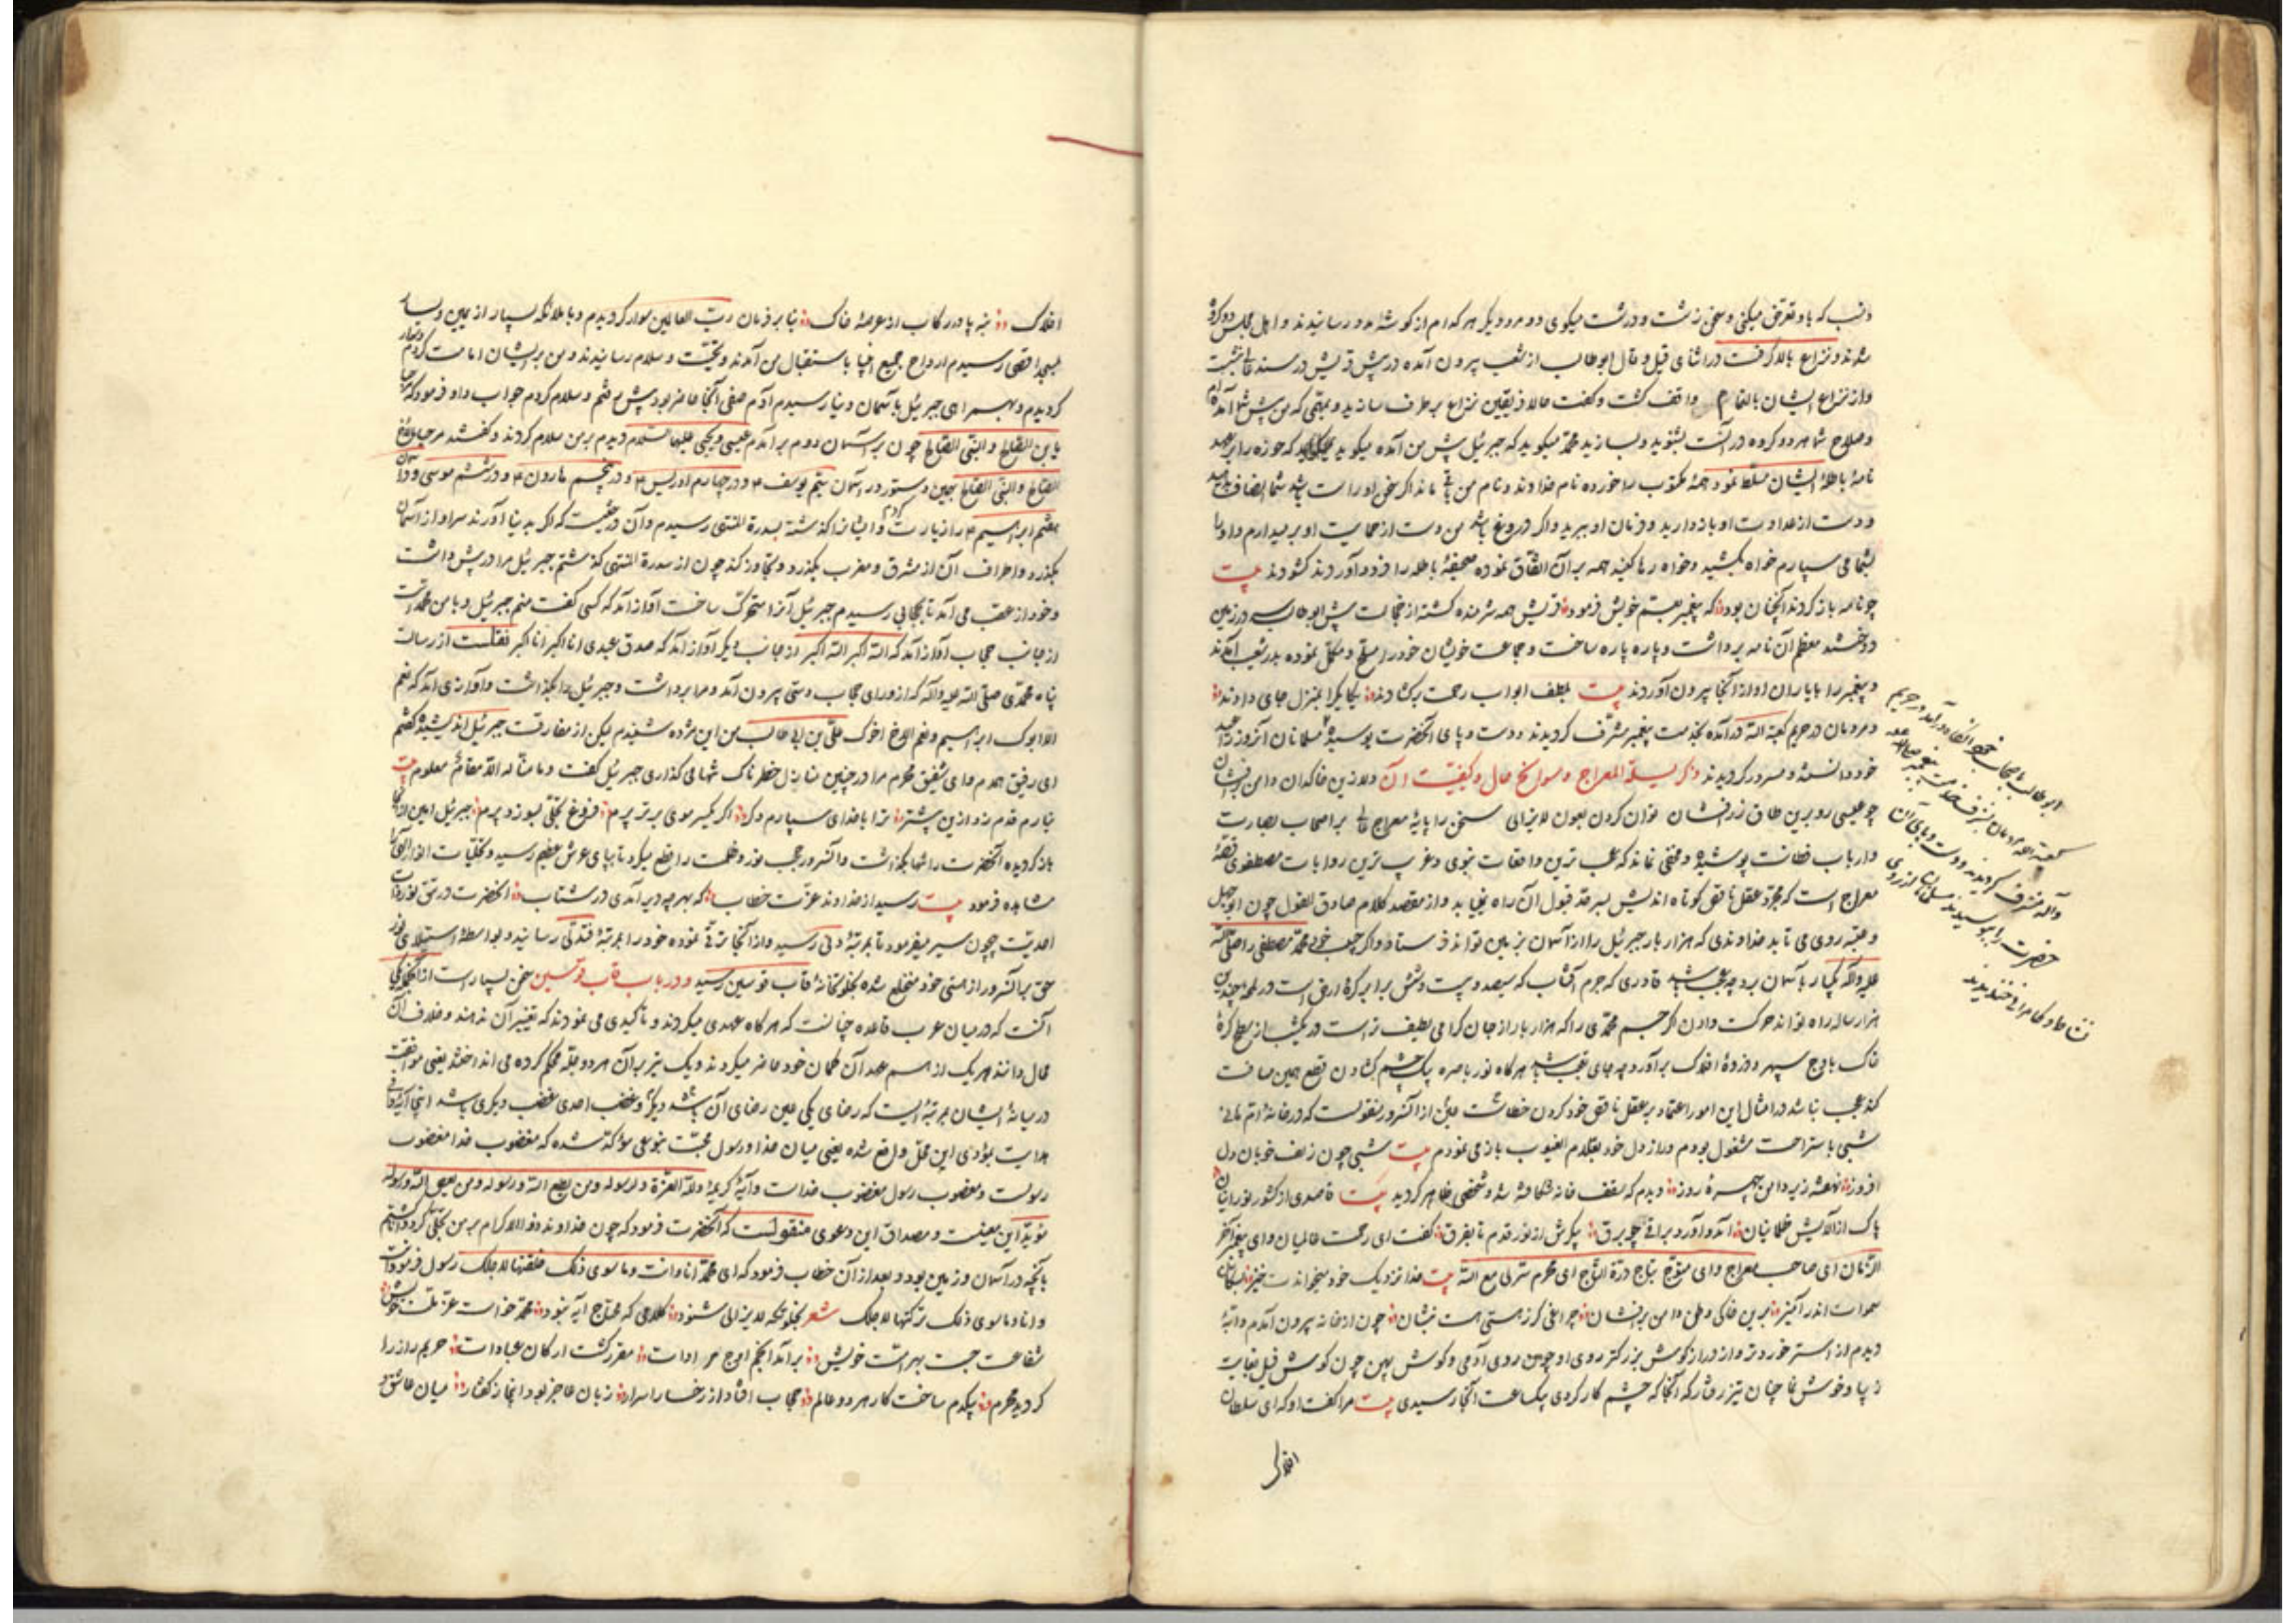 شدند و نزاع بالا گرفت در اثنای قیل و قال ابوطالب از شعب بیرون آمده در پیش قریش در مسند نشست
و از نزاع ایشان بالتمام واقف گشت و گفت حالا فریقین نزاع برطرف سازید و که من پیش شما آمده‌ام
و صلاح شما هر دو کرده در آنست بشنوید و بسازید محمد میگوید که جبرئیل پیش من آمده میگوید که
نامهٔ باطلهٔ ایشان مسلط نمود همهٔ مکتوب را خورده نام خداوند و نام من مانده اگر سخن او راست باشد شما انصاف
و دست از عداوت او باز دارید و فرمان او برید و اگر دروغ باشد من دست از حمایت او بر میدارم و او را
بشما می سپارم خواه بکشید و خواه رها کنید همه بر آن اتفاق نموده صحیفهٔ باطله را فرود آوردند گشودند بیت
چو نامه باز کردند آنچنان بود که پیغمبر بعم خویش فرمود قریش همه شرمنده گشته از خجالت پیش ابوطالب سر در زمین
دوختند معظم آن نامه برداشت و پاره پاره ساخت و جماعت خویشان خود را مسلح و مکمل نموده بدر شعب آمدند
و پیغمبر را با یاران او از آنجا بیرون آوردند بیت بلطف ابواب رحمت برگشادند یکایک را بمنزل جای دادند
و مردمان در حریم کعبة الله در آمده بخدمت پیغمبر مشرف گردیدند و دست و پای آنحضرت بوسیده مسلمانان آنروز را عید
خود دانسته و مسرور گردیدند ذکر لیلة المعراج و سوانح حال و کیفیت آن دلا زین خاکدان دامن برفشان
چو عیسی رو برین طاق زرفشان توان کردن بعون لایزالی سخن را پایهٔ معراج عالی بر اصحاب بصارت
و ارباب فطانت پوشیده و مخفی نماند که عجب ترین واقعات نبوی و غریب ترین روایات مصطفوی قصهٔ
معراج است که بمجرد عقل ناقص کوتاه اندیش بسرحد قبول آن راه نیابد و از مقصد کلام صادق القول چون ابوجهل
و عتبه روی می تابد خداوندی که هزار بار جبرئیل را از آسمان بزمین تواند فرستاد و اگر محمد مصطفی را صلی الله
علیه و آله یکبار بآسمان برد چه عجب باشد قادری که جرم آفتاب که سیصد و بیست و شش برابر کرهٔ ارض است در لمحه چندین
هزار ساله راه تواند حرکت دادن اگر جسم محمدی را که هزار بار از جان گرامی لطیف تر است در یکشب از سطح کرهٔ
خاک باوج سپهر و ذروهٔ افلاک بر آورد چه جای تعجب باشد هرگاه نور باصره یک چشم گشادن قطع همین مسافت
کند عجب نباشد در امثال این امور اعتماد بر عقل ناقص خود کردن خطاست از آنسرور منقولست که در خانهٔ ام هانی
شبی باستراحت مشغول بودم و راز دل خود بعلام الغیوب باز می نمودم بیت شبی چون زلف خوبان دل
افروز نهفته زیر دامن چهرهٔ روز دیدم که سقف خانه شکافته شد و شخصی ظاهر گردید بیت قاصدی از کشور نورانیان
پاک از آلایش ظلمانیان آمد و آورد براقی چو برق پیکرش از نور قدم تا بفرق گفت ای رحمت عالمیان و ای پیغمبر آخر
الزمان ای صاحب معراج و ای متوج بتاج درة التاج ای محرم سر لی مع الله بیت خدا نزدیک خود میخواندت خیز
سموات اندر آمیز برین خاکی وطن دامن برفشان چراغی کز زمستی هست بنشان چون از خانه بیرون آمدم دابهٔ
دیدم از استر خوردتر و از دراز گوش بزرگتر روی او چون روی آدمی و گوش پهن چون گوش فیل بغایت
زیبا و خوش نما چنان تیز رفتار که آنجا که چشم کار کردی بیکساعت آنجا رسیدی بیت مرا گفت او که ای سلطان
افلاک
افلاک بنه پا در رکاب از عرصهٔ خاک بنابر فرمان رب العالمین سوار گردیدم و با ملائکه بسیار از یمین و یسار
بمسجد اقصی رسیدم ارواح جمیع انبیا باستقبال من آمدند و تحیت و سلام رسانیدند و من بر ایشان امامت کردم
گردیدم و بهمراهی جبرئیل بآسمان دنیا رسیدم آدم صفی آنجا حاضر بود پیش رفتم و سلام کردم جواب داد و فرمود که مرحبا
یا بن الصالح و النبی الصالح چون بر آسمان دوم بر آمدم عیسی و یحیی علیهما السلام دیدم بر من سلام کردند و گفتند مرحبا بالاخ
الصالح و النبی الصالح بهمین دستور در آسمان سیم یوسف و در چهارم ادریس و در پنجم هارون و در ششم موسی و در آسمان
هفتم ابراهیم را زیارت کردم و از ایشان گذشته بسدرة المنتهی رسیدم و آن درختیست که اگر بدنیا آورند سر او از آسمان
بگذرد و اطراف آن از مشرق و مغرب بگذرد و تجاوز کند چون از سدرة المنتهی گذشتم جبرئیل مرا در پیش داشت
و خود از عقب می آمد تا بحجابی رسیدم جبرئیل آنرا متحرک ساخت آواز آمد که کسی گفت منم جبرئیل و با من محمد است
از جانب حجاب آواز آمد که الله اکبر الله اکبر از جانب دیگر آواز آمد که صدق عبدی انا اکبر انا اکبر نقلست از رسالت
پناه محمدی صلی الله علیه و آله که از ورای حجاب دستی بیرون آمد و مرا برداشت و جبرئیل را بگذاشت و آوازی آمد که نعم
الاب ابوک ابراهیم و نعم الاخ اخوک علی بن ابی طالب من این مژده شنیدم لیکن از مفارقت جبرئیل اندیشیده گفتم
ای رفیق همدم و ای شفیق محرم مرا در چنین منازل خطرناک تنها می گذاری جبرئیل گفت و ما منا له الا مقام معلوم بیت
نیارم قدم زد ازین پیشتر ترا با خدای سپارم دگر اگر یکسر موی برتر پرم فروغ تجلی بسوزد پرم جبرئیل امین از آنجا
باز گردیده آنحضرت را تنها بگذاشت و آنسرور حجب نور و ظلمت را قطع میکرد تا بپای عرش عظیم رسید و تجلیات انوار الهی را
مشاهده فرمود بیت رسید از خداوند عزت خطاب که بهر چه دیر آمدی در شتاب آنحضرت در تتق نور ذات
احدیت بیچون سیر میفرمود تا بمرتبهٔ دنی رسید و از آنجا ترقی نموده خود را بمرتبهٔ فتدلی رسانید و بواسطهٔ استیلای نور
حق بر آنسرور از هستی خود منخلع شده بخلوتخانهٔ قاب قوسین رسید و در باب قاب قوسین سخن بسیار است از آنجمله یکی
آنست که در میان عرب قاعده چنانست که هرگاه عهدی میکردند و تاکیدی می نمودند که تغییر آن ندهند و خلاف آن
محال دانند هر یک از هم عهد آن کمان خود حاضر میکردند و یک تیر بر آن هر دو چله محکم کرده می انداختند یعنی موافقت
در میانهٔ ایشان بمرتبهٔ ایست که رضای یکی عین رضای آن باشد دیگر و غضب احدی غضب دیگری باشد
هدایت مؤدی این محل واقع شده یعنی میان خدا و رسول محبت بنوعی مؤکد شده که مغضوب خدا مغضوب
رسولست و مغضوب رسول مغضوب خداست و آیهٔ کریمهٔ و لله العزة و لرسوله و من یطع الله و رسوله و من یعص الله و رسوله
مؤید این معنیست و مصداق این دعوی منقولست که آنحضرت فرمود که چون خداوند ذو الاکرام بر من تجلی کرد دانا گشتم
بآنچه در آسمان و زمین بود و بعد از آن خطاب فرمود که ای محمد انا و انت و ما سوی ذلک خلقتها لاجلک رسول فرمود انت
و انا و ما سوی ذلک ترکتها لاجلک شعر بخلوتگه لایزالی شنود کلامی که محتاج آیه نبود محمد خواست عزتت خویش
شفاعت جست بهر امت خویش بر آمد انجم اوج مرادات مقرر گشت ارکان عبادات حریم راز را
گردید محرم بیکدم ساخت کار هر دو عالم حجاب افتاد از رخسار اسرار زبان عاجز بود آنجا ز گفتار میان عاشق و